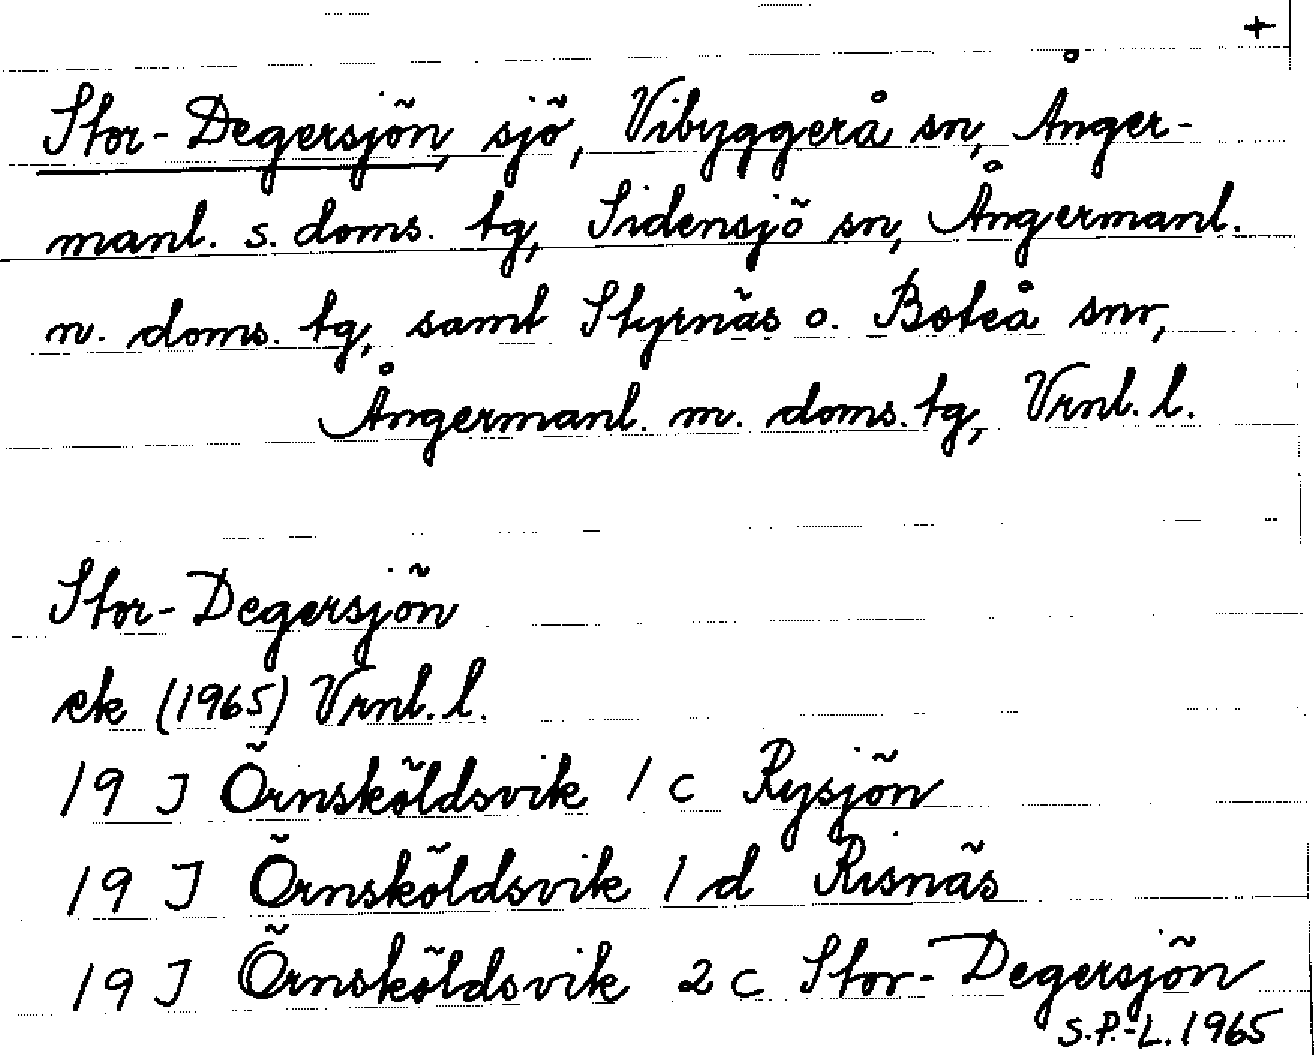 +
Stor-Degersjön, sjö, Vibyggerå sn, Ånger-
manl. s. doms. tg, Sidensjö sn, Ångermanl.
n. doms. tg, samt Styrnäs o. Boteå snr,
Ångermanl. m. doms. tg, Vrnl. l.
Stor-Degersjön
ek (1965) Vrnl. l.
19 J Örnsköldsvik 1 c Rysjön
19 J Örnsköldsvik 1 d Risnäs
19 J Örnsköldsvik 2 c Stor-Degersjön
S.P.-L. 1965